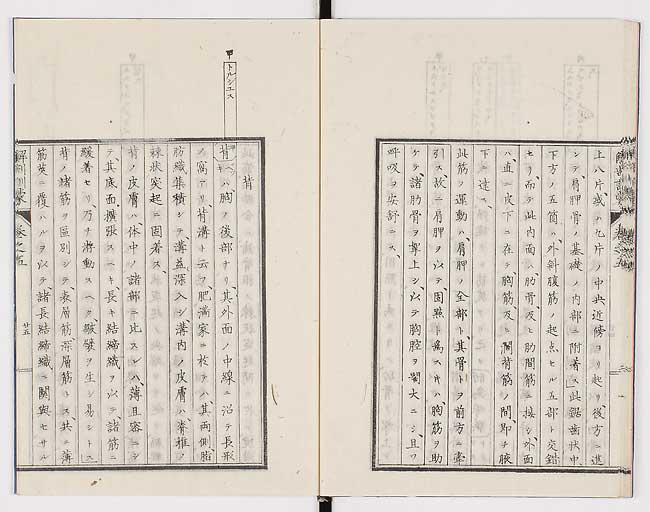 上八片、或ハ九片ノ中央近傍ヨリ起リ、後方ニ進
ンテ、肩胛骨ノ基礎ノ内部ニ附着ス、此鋸歯状中
下方ノ五箇ハ、外斜腹筋ノ起点セル五部ト交錯
セリ、而テ此内面ハ、肋骨及ヒ肋間筋ニ接シ、外面
ハ、直ニ皮下ニ在テ、胸筋及ヒ濶背筋ノ間、即チ腋
下ニ達ス、
此筋ノ運動ハ、肩胛ノ全部ト、其骨トヲ前方ニ牽
引ス、故ニ肩胛ヲ以テ、固点ト為スキハ、胸筋ヲ助
ケテ、諸肋骨ヲ挙上シ、以テ胸腔ヲ濶大ニシ、且ツ
呼吸ヲ安舒ニス、
甲
トルシユス
背
背ハ、胸ノ後部ナリ、其外面ノ中線ニ沿テ、長形
ノ窩アリ、背溝ト云フ、肥満家ニ於テハ、其両側、脂
肪織集積シテ、溝益深入シ、溝内ノ皮膚ハ、脊椎ノ
棘状突起ニ固着ス、
背ノ皮膚ハ、体中ノ諸部ニ比スレハ、薄且密ニシ
テ、其底面、擴張スヘキ、長キ結締織ヲ以テ、諸筋ニ
緩着セリ、乃チ滑動スヘク、皺襞ヲ生シ易シトス、
背ノ諸筋ヲ区別シテ、表層筋、深層筋トス、共ニ薄
筋莢ニ覆ハルヲ以テ、諸長結締織ニ關與セサル
解剖訓蒙
巻之五
廿五